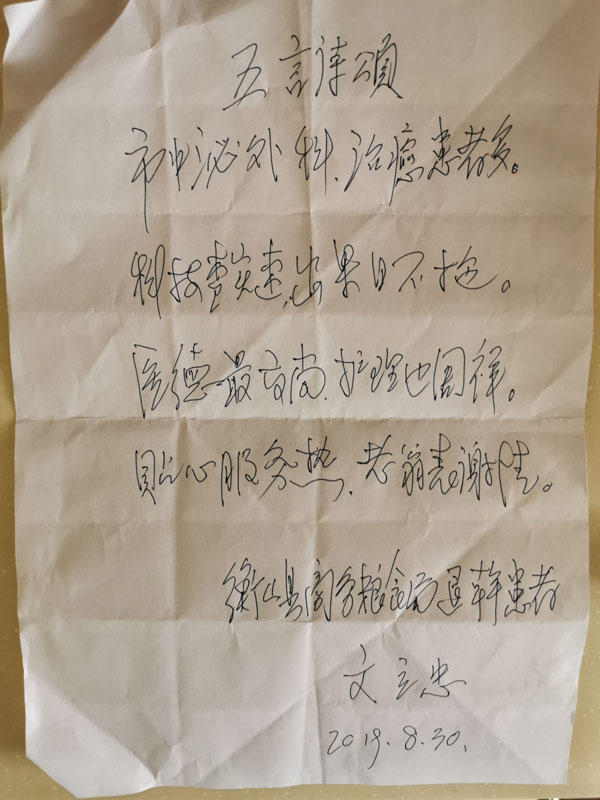 五言诗颂
市中泌外科,治癒患者多。
科技 实速,出果日不拖。
医德最高尚,护理也周祥。
贴心服务热,老翁表谢情。
衡山县商务粮食局退休干患者
文立忠
2019.8.30.